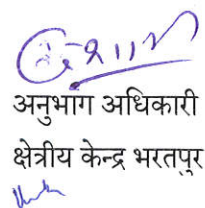 अनुभाग अधिकारी
क्षेत्रीय केन्द्र भरतपुर